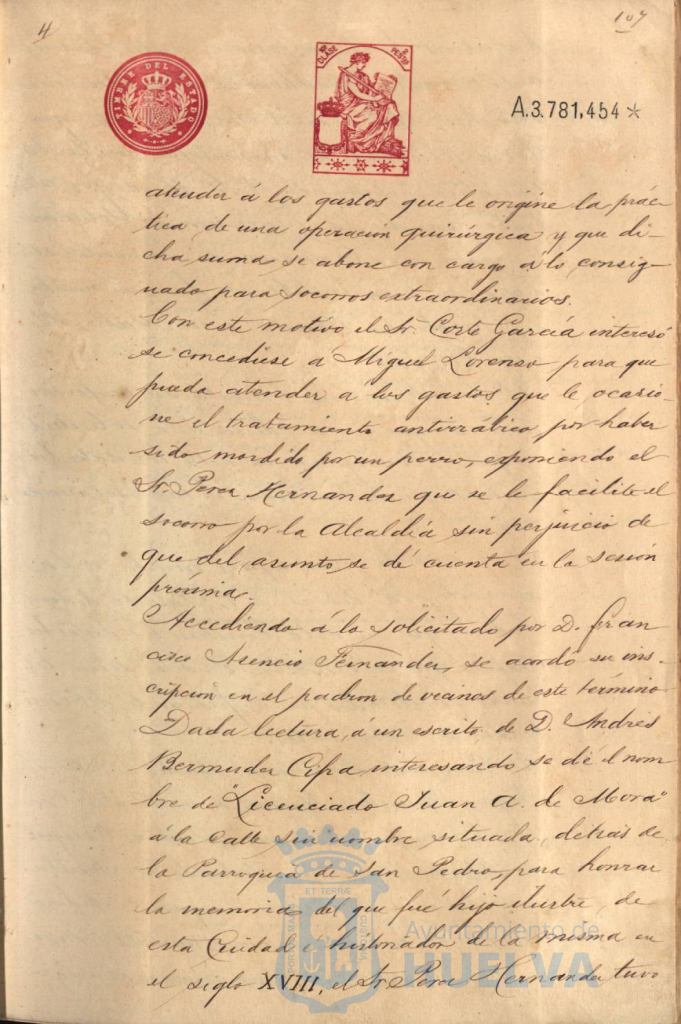 4
107
TIMBRE DEL ESTADO
CLASE
PESETAS
A.3.781,454 *
atender á los gastos que le origine la prác-
tica de una operacion quirúrgica y que di-
cha suma se abone con cargo á lo consig-
nado para socorros extraordinarios.
Con este motivo el Sr. Corte García interesó
se concediese a Miguel Lorenzo para que
pueda atender a los gastos que le ocasio-
ne el tratamiento antirrábico por haber
sido mordido por un perro, exponiendo el
Sr. Perez Hernandez que se le facilite el
socorro por la Alcaldía sin perjuicio de
que del asunto se dé cuenta en la sesión
próxima.
Accediendo á lo solicitado por D. Fran
cisco Asencio Fernandez, se acordó su ins-
cripcion en el padron de vecinos de este término.
Dada lectura á un escrito de D. Andrés
Bermudez Cifra, interesando se dé el nom-
bre de "Licenciado Juan A. de Mora"
á la calle sin nombre situada detrás de
la Parroquia de San Pedro, para honrar
la memoria del que fué hijo ilustre de
esta Ciudad é historiador de la misma en
el siglo XVIII, el Sr. Perez Hernandez tuvo
ET TERRÆ
Ayuntamiento de
HUELVA